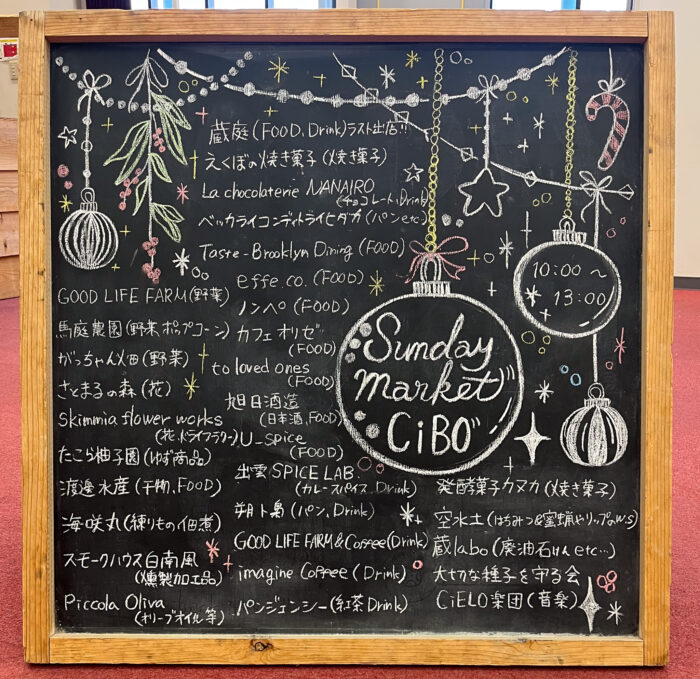 蔵庭(FOOD, Drink)ラスト出店!!
えくぼの焼き菓子(焼き菓子)
La chocolaterie NANAIRO
(チョコレート、Drink)
ベッカライコンディトライヒダカ(パンetc)
Taste-Brooklyn Dining (FOOD)
effe.co. (FOOD)
ノンペ(FOOD)
カフェ オリゼ
(FOOD)
to loved ones
(FOOD)
旭日酒造
(日本酒, FOOD)
U_spice
(FOOD)
出雲SPICE LAB.
(カレースパイス, Drink)
朔ト鳥(パン, Drink)
GOOD LIFE FARM&Coffee(Drink)
imagine Coffee (Drink)
パンジェンシー(紅茶 Drink)
GOOD LIFE FARM(野菜)
馬庭農園(野菜 ポップコーン)
がっちゃん畑(野菜)
さとまるの森(花)
Skimmia flower works
(花、ドライフラワー)
たこら柚子園(ゆず商品)
渡邊水産(干物, FOOD)
海咲丸(練りもの 佃煮)
スモークハウス白南風
(燻製加工品)
Piccola Oliva
(オリーブオイル 等)
10:00~
13:00
Sunday
market
CiBO
発酵菓子クヌカ(焼き菓子)
空水土(はちみつ&蜜蝋やリップのWS)
蔵labo(廃油石けんetc...)
大切な種子を守る会
CiELO楽団(音楽)